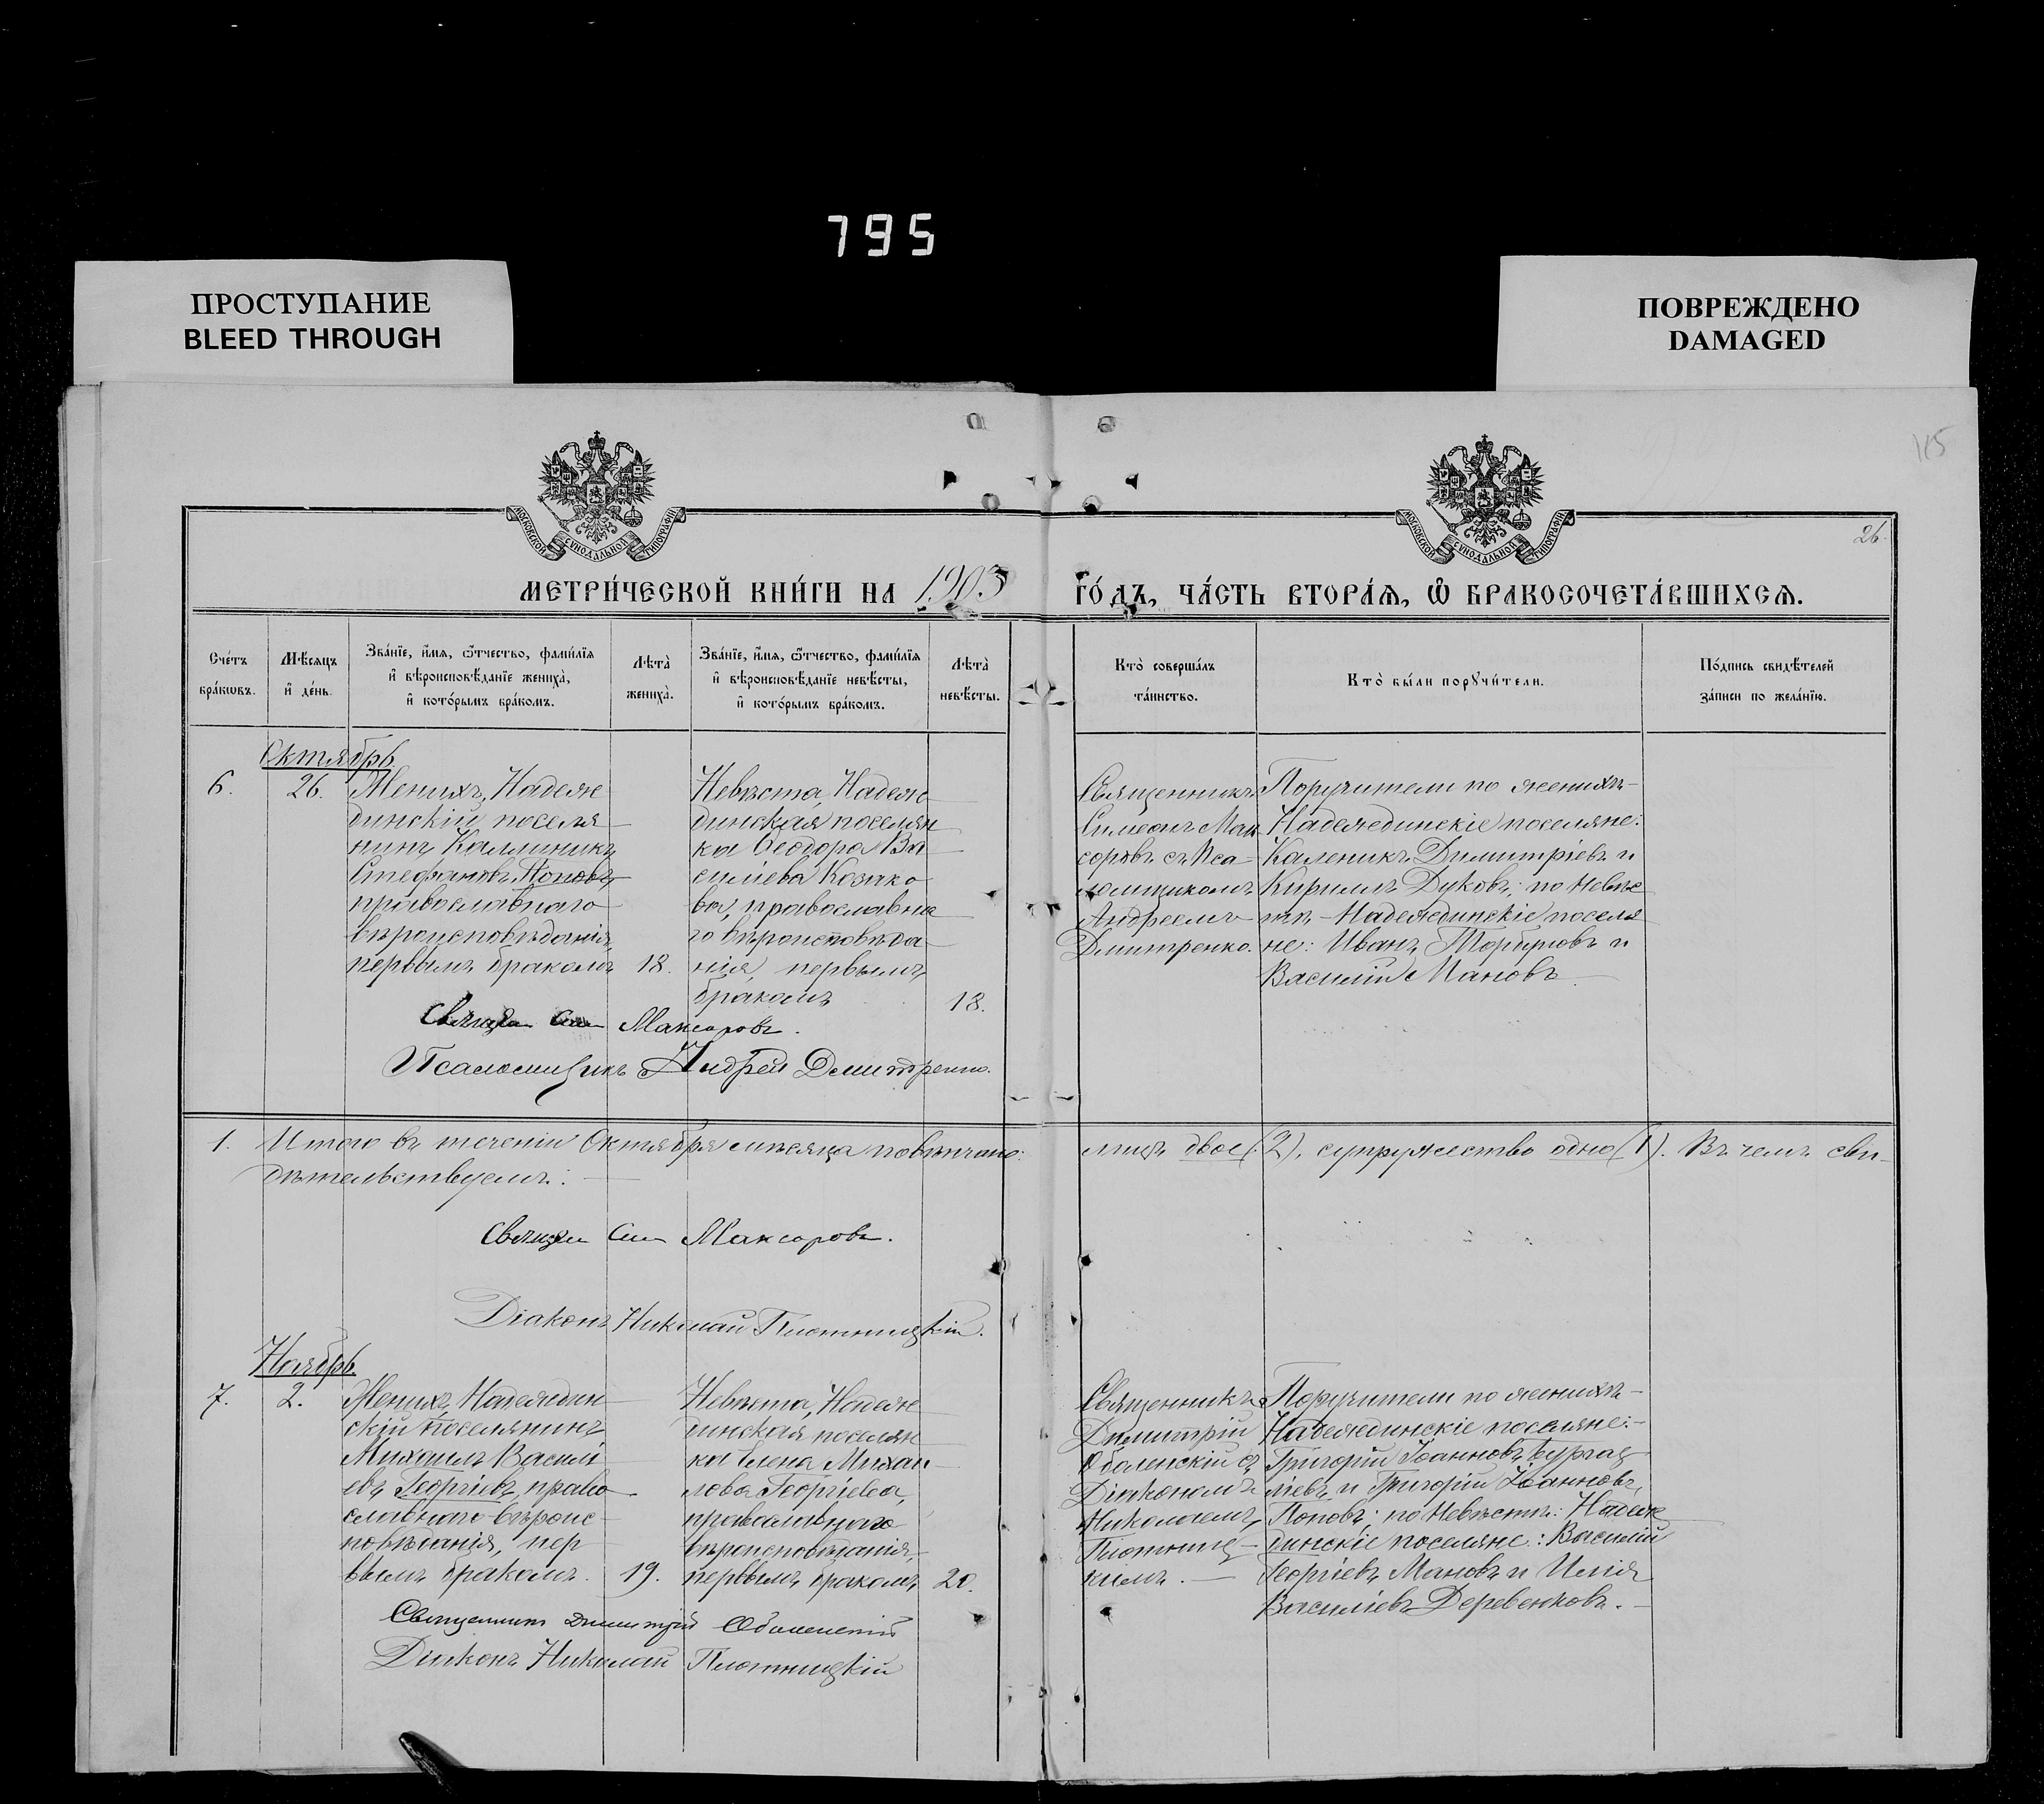 795
ПРОСТУПАНИЕ
BLEED THROUGH
ПОВРЕЖДЕНО
DAMAGED
115
МОСКОВСКОЙ СѴНОДАЛЬНОЙ ТИПОГРАФІИ
МОСКОВСКОЙ СѴНОДАЛЬНОЙ ТИПОГРАФІИ
26.
МЕТРИ́ЧЕСКОЙ КНИ́ГИ НА 1903 ГО́ДЪ, ЧА́СТЬ ВТОРА́Ѧ, Ѡ҆ БРАКОСОЧЕТА́ВШИХСѦ.
Сче́тъ
бра́кѡвъ.
Мѣ́сѧцъ
и҆ де́нь.
Зва́нїе, и҆́мѧ, ѻ҆́тчество, фами́лїѧ
и҆ вѣроисповѣ́данїе жениха̀,
и҆ кото́рымъ бра́комъ.
Лѣта̀
жениха̀.
Зва́нїе, и҆́мѧ, ѻ҆́тчество, фами́лїѧ
и҆ вѣроисповѣ́данїе невѣ́сты,
и҆ кото́рымъ бра́комъ.
Лѣта̀
невѣ́сты.
Кто̀ соверша́лъ
та́инство.
Кто̀ бы́ли порꙋчи́тели.
По́дпись свидѣ́телей
за́писи по жела́нїю.
Октябрь.
6.
26.
Женихъ, Надеж
динскій поселя
нинъ Каллиникъ
Стефановъ Поповъ,
православнаго
вѣроисповѣданія,
первымъ бракомъ
18.
Невѣста, Надеж
динская поселян
ка Ѳеодора Ва
силіева Козако
ва, православна
го вѣроисповѣда
нія, первымъ
бракомъ
18.
Священникъ
Симеонъ Мак
соровъ съ Пса
ломщикомъ
Андреемъ
Дмитренко.
Поручители по женихѣ
Надеждинскіе поселяне:
Каленикъ Димитріевъ и
Кириллъ Дуковъ; по Невѣс
тѣ, Надеждинскіе поселя
не: Иванъ Торбуновъ и
Василій Мановъ
Максоровъ.
Псаломщикъ Андрей Дмитренко.
1. Итого въ теченіи Октября мѣсяца повѣнчано: лицъ двое (2), супружество одно (1). Въ чемъ сви-
дѣтельствуемъ:
Максоровъ.
Діаконъ Николай Плотницкій.
Ноябрь.
7.
2.
Женихъ, Надеждин
скій поселянинъ
Михаилъ Василі
евъ Георгіевъ, право
славнаго вѣроис-
повѣданія, пер
вымъ бракомъ.
19.
Невѣста, Надеж
динская поселян
ка Елена Михаи
лова Георгіева,
православнаго
вѣроисповѣданія,
первымъ бракомъ
20.
Священникъ
Димитрій
Оболенскій съ
Діакономъ
Николаемъ
Плотниц
кимъ.
Поручители по женихѣ
Надеждинскіе поселяне:
Григорій Іоанновъ Бургад
ліевъ и Григорій Іоанновъ
Поповъ; по Невѣстѣ: Надеж
динскіе поселяне: Василій
Георгіевъ Мановъ и Илія
Василіевъ Деревенковъ.
Священникъ Димитрій Оболенскій
Діаконъ Николай Плотницкій